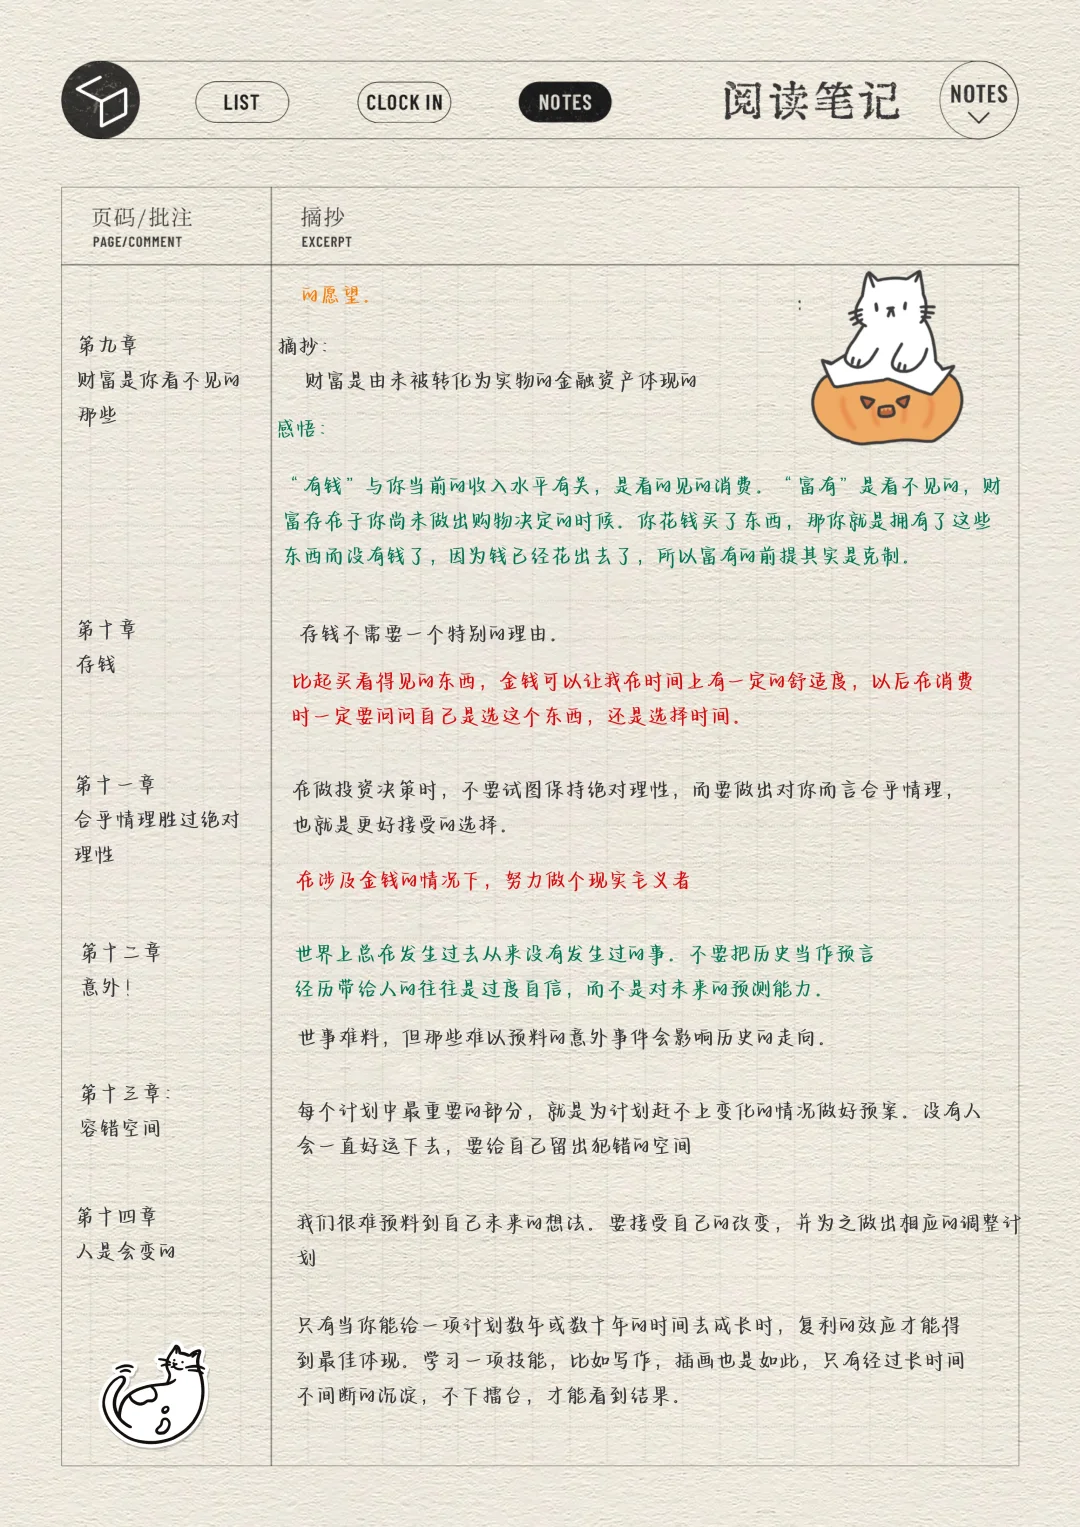 LIST
CLOCK IN
NOTES
阅读笔记
NOTES
页码/批注
PAGE/COMMENT
摘抄
EXCERPT
的愿望.
:
第九章
财富是你看不见的
那些
摘抄:
财富是由未被转化为实物的金融资产体现的
感悟:
“有钱”与你当前的收入水平有关, 是看的见的消费. “富有”是看不见的, 财
富存在于你尚未做出购物决定的时候. 你花钱买了东西, 那你就是拥有了这些
东西而没有钱了, 因为钱已经花出去了, 所以富有的前提其实是克制.
第十章
存钱
存钱不需要一个特别的理由.
比起买看得见的东西, 金钱可以让我在时间上有一定的舒适度, 以后在消费
时一定要问问自己是选这个东西, 还是选择时间.
第十一章
合乎情理胜过绝对
理性
在做投资决策时, 不要试图保持绝对理性, 而要做出对你而言合乎情理,
也就是更好接受的选择.
在涉及金钱的情况下, 努力做个现实主义者
第十二章
意外!
世界上总在发生过去从来没有发生过的事. 不要把历史当作预言
经历带给人的往往是过度自信, 而不是对未来的预测能力.
世事难料, 但那些难以预料的意外事件会影响历史的走向.
第十三章:
容错空间
每个计划中最重要的部分, 就是为计划赶不上变化的情况做好预案. 没有人
会一直好运下去, 要给自己留出犯错的空间
第十四章
人是会变的
我们很难预料到自己未来的想法. 要接受自己的改变, 并为之做出相应的调整计
划
只有当你能给一项计划数年或数十年的时间去成长时, 复利的效应才能得
到最佳体现. 学习一项技能, 比如写作, 插画也是如此, 只有经过长时间
不间断的沉淀, 不下擂台, 才能看到结果.